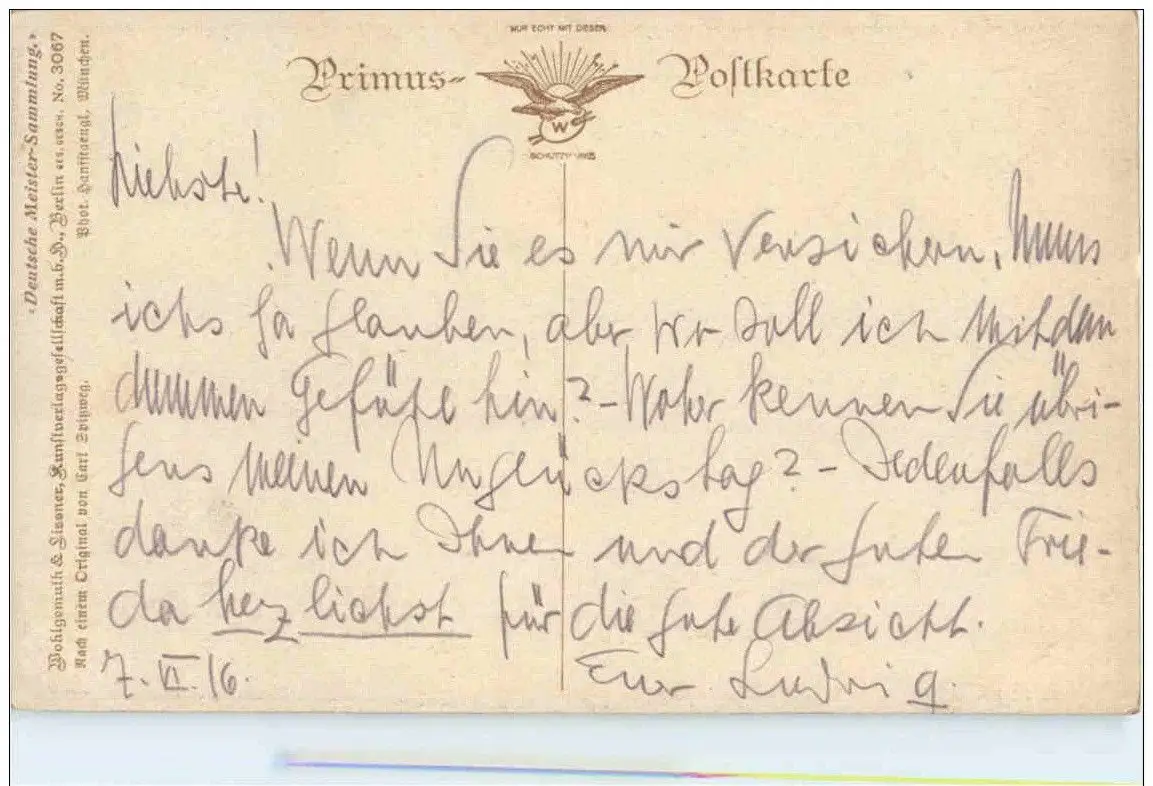 NUR ECHT MIT DIESER
Primus- Postkarte
W
SCHUTZMARKE
«Deutsche Meister-Sammlung.»
Wohlgemuth & Lissner, Kunstverlagsgesellschaft m.b.H., Berlin No. 3067
Nach einem Original von Carl Spitzweg. Phot. Hanfstaengl, München.
Liebste!
Wenn Sie es mir versichern, muss
ichs ja glauben, aber wo soll ich mit dem
dummen Gefühl hin? - Woher kennen Sie übri-
gens meinen Unglückstag? - Jedenfalls
danke ich Ihnen und der guten Frie-
da herzlichst für die gute Absicht.
7. VI. 16. Euer Ludwig.